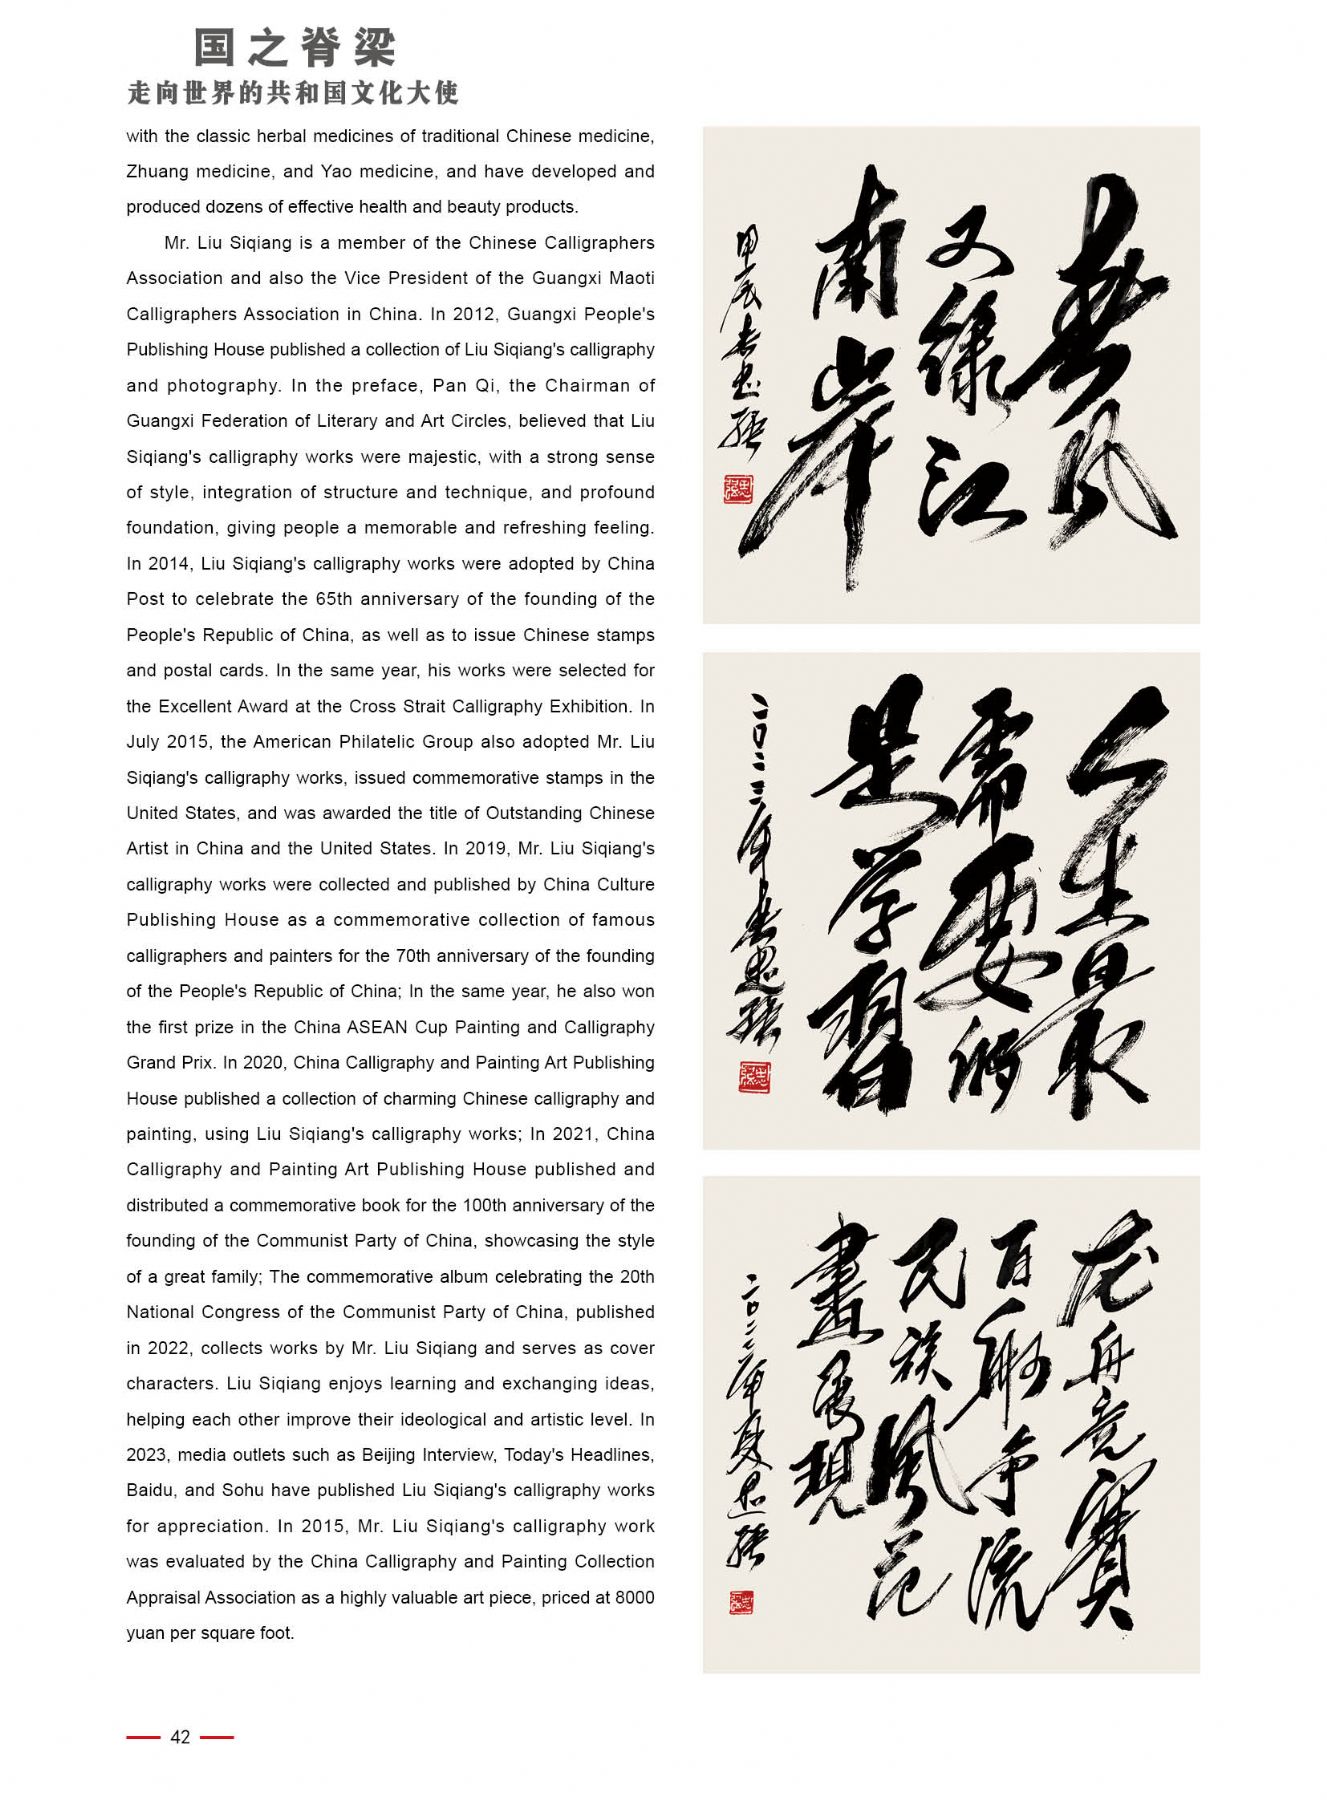 国之脊梁
走向世界的共和国文化大使
with the classic herbal medicines of traditional Chinese medicine,
Zhuang medicine, and Yao medicine, and have developed and
produced dozens of effective health and beauty products.
Mr. Liu Siqiang is a member of the Chinese Calligraphers
Association and also the Vice President of the Guangxi Maoti
Calligraphers Association in China. In 2012, Guangxi People's
Publishing House published a collection of Liu Siqiang's calligraphy
and photography. In the preface, Pan Qi, the Chairman of
Guangxi Federation of Literary and Art Circles, believed that Liu
Siqiang's calligraphy works were majestic, with a strong sense
of style, integration of structure and technique, and profound
foundation, giving people a memorable and refreshing feeling.
In 2014, Liu Siqiang's calligraphy works were adopted by China
Post to celebrate the 65th anniversary of the founding of the
People's Republic of China, as well as to issue Chinese stamps
and postal cards. In the same year, his works were selected for
the Excellent Award at the Cross Strait Calligraphy Exhibition. In
July 2015, the American Philatelic Group also adopted Mr. Liu
Siqiang's calligraphy works, issued commemorative stamps in the
United States, and was awarded the title of Outstanding Chinese
Artist in China and the United States. In 2019, Mr. Liu Siqiang's
calligraphy works were collected and published by China Culture
Publishing House as a commemorative collection of famous
calligraphers and painters for the 70th anniversary of the founding
of the People's Republic of China; In the same year, he also won
the first prize in the China ASEAN Cup Painting and Calligraphy
Grand Prix. In 2020, China Calligraphy and Painting Art Publishing
House published a collection of charming Chinese calligraphy and
painting, using Liu Siqiang's calligraphy works; In 2021, China
Calligraphy and Painting Art Publishing House published and
distributed a commemorative book for the 100th anniversary of the
founding of the Communist Party of China, showcasing the style
of a great family; The commemorative album celebrating the 20th
National Congress of the Communist Party of China, published
in 2022, collects works by Mr. Liu Siqiang and serves as cover
characters. Liu Siqiang enjoys learning and exchanging ideas,
helping each other improve their ideological and artistic level. In
2023, media outlets such as Beijing Interview, Today's Headlines,
Baidu, and Sohu have published Liu Siqiang's calligraphy works
for appreciation. In 2015, Mr. Liu Siqiang's calligraphy work
was evaluated by the China Calligraphy and Painting Collection
Appraisal Association as a highly valuable art piece, priced at 8000
yuan per square foot.
春风
又绿江
南岸
甲辰春思强
思强
人生最
需要的
是学習
二〇二三年春思强
思强
花舟竞賽
百舸争流
民族風范
畫展現
二〇二二年夏思强
思强
42